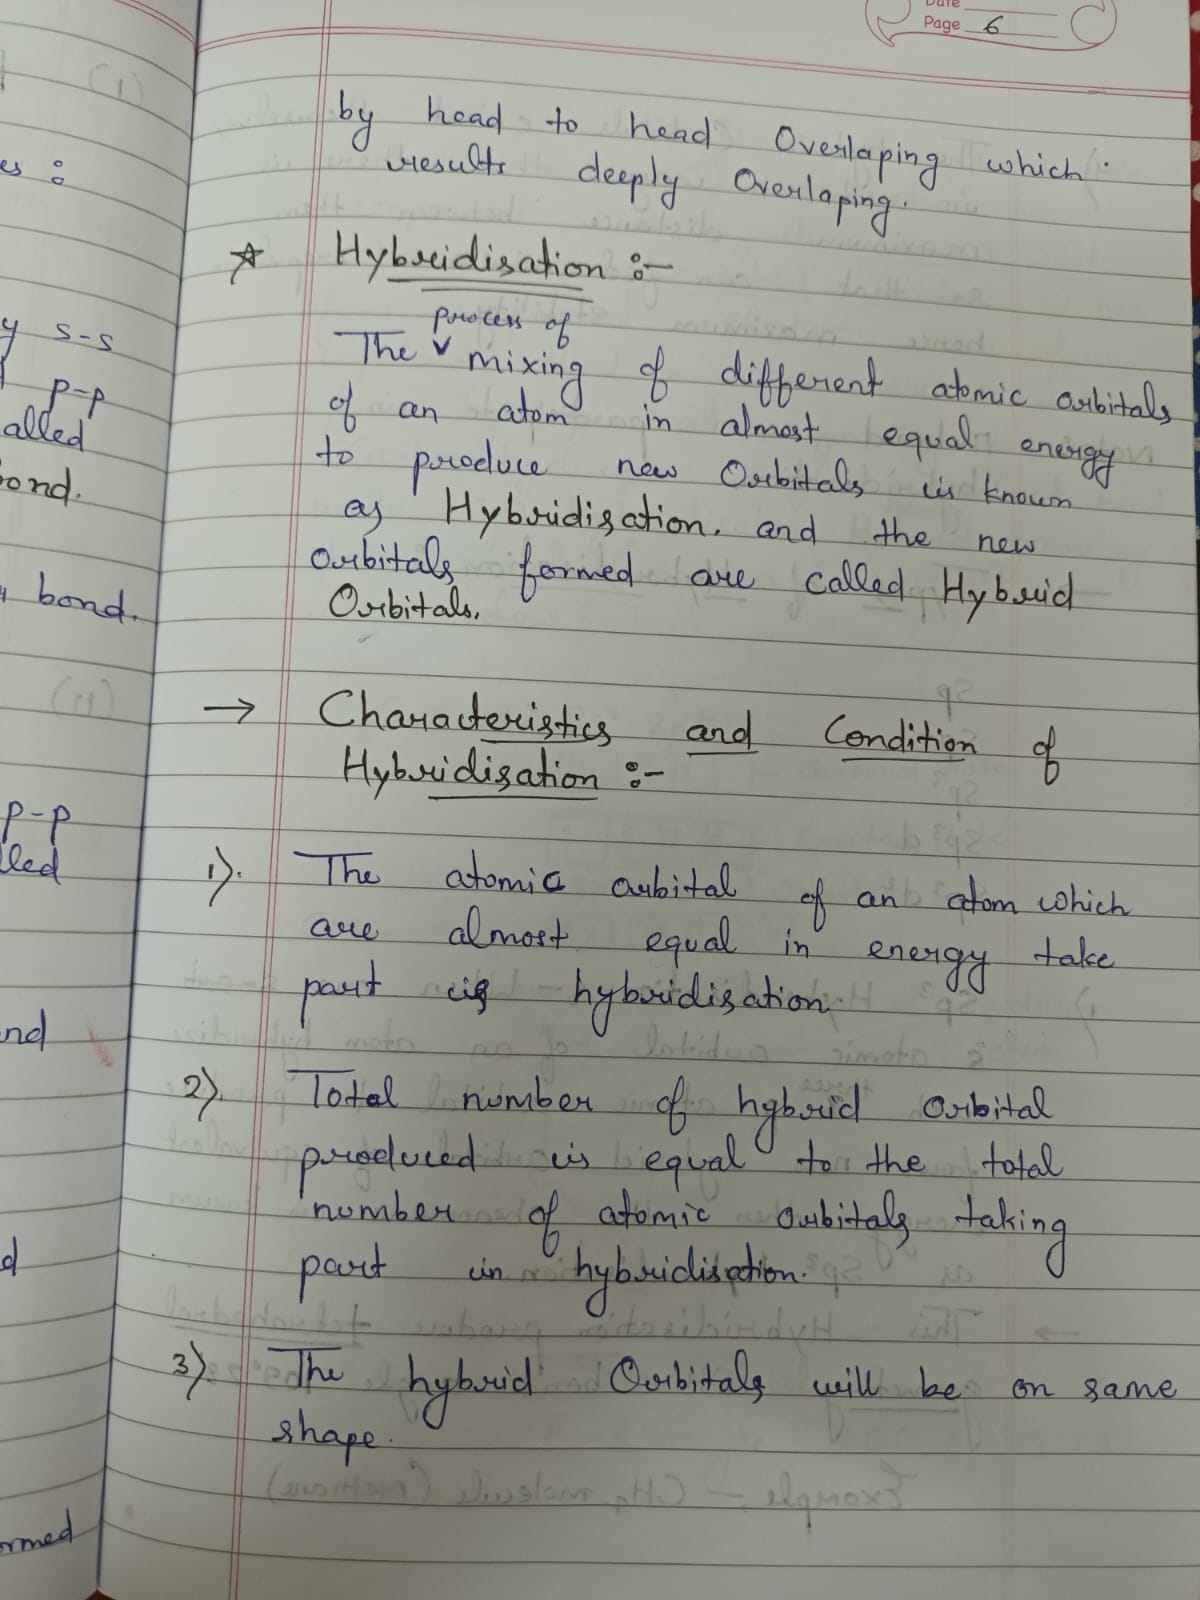 Date
Page 6
by head to head Overlaping which
results deeply Overlaping.
☆ Hybridisation :-
process of
The ✓ mixing of different atomic orbitals
of an atom in almost equal energy
to produce new Orbitals is known
as Hybridisation. and the new
orbitals formed are called Hybrid
Orbitals.
→ Characteristics and Condition of
Hybridisation :-
1). The atomic orbital of an atom which
are almost equal in energy take
part is hybridisation.
2). Total number of hybrid orbital
produced is equal to the total
number of atomic orbitals taking
part in hybridisation.
3). The hybrid Orbitals will be on same
shape.
es :
y s-s
p-p
alled
bond.
bond.
p-p
lled
nd
d
ormed